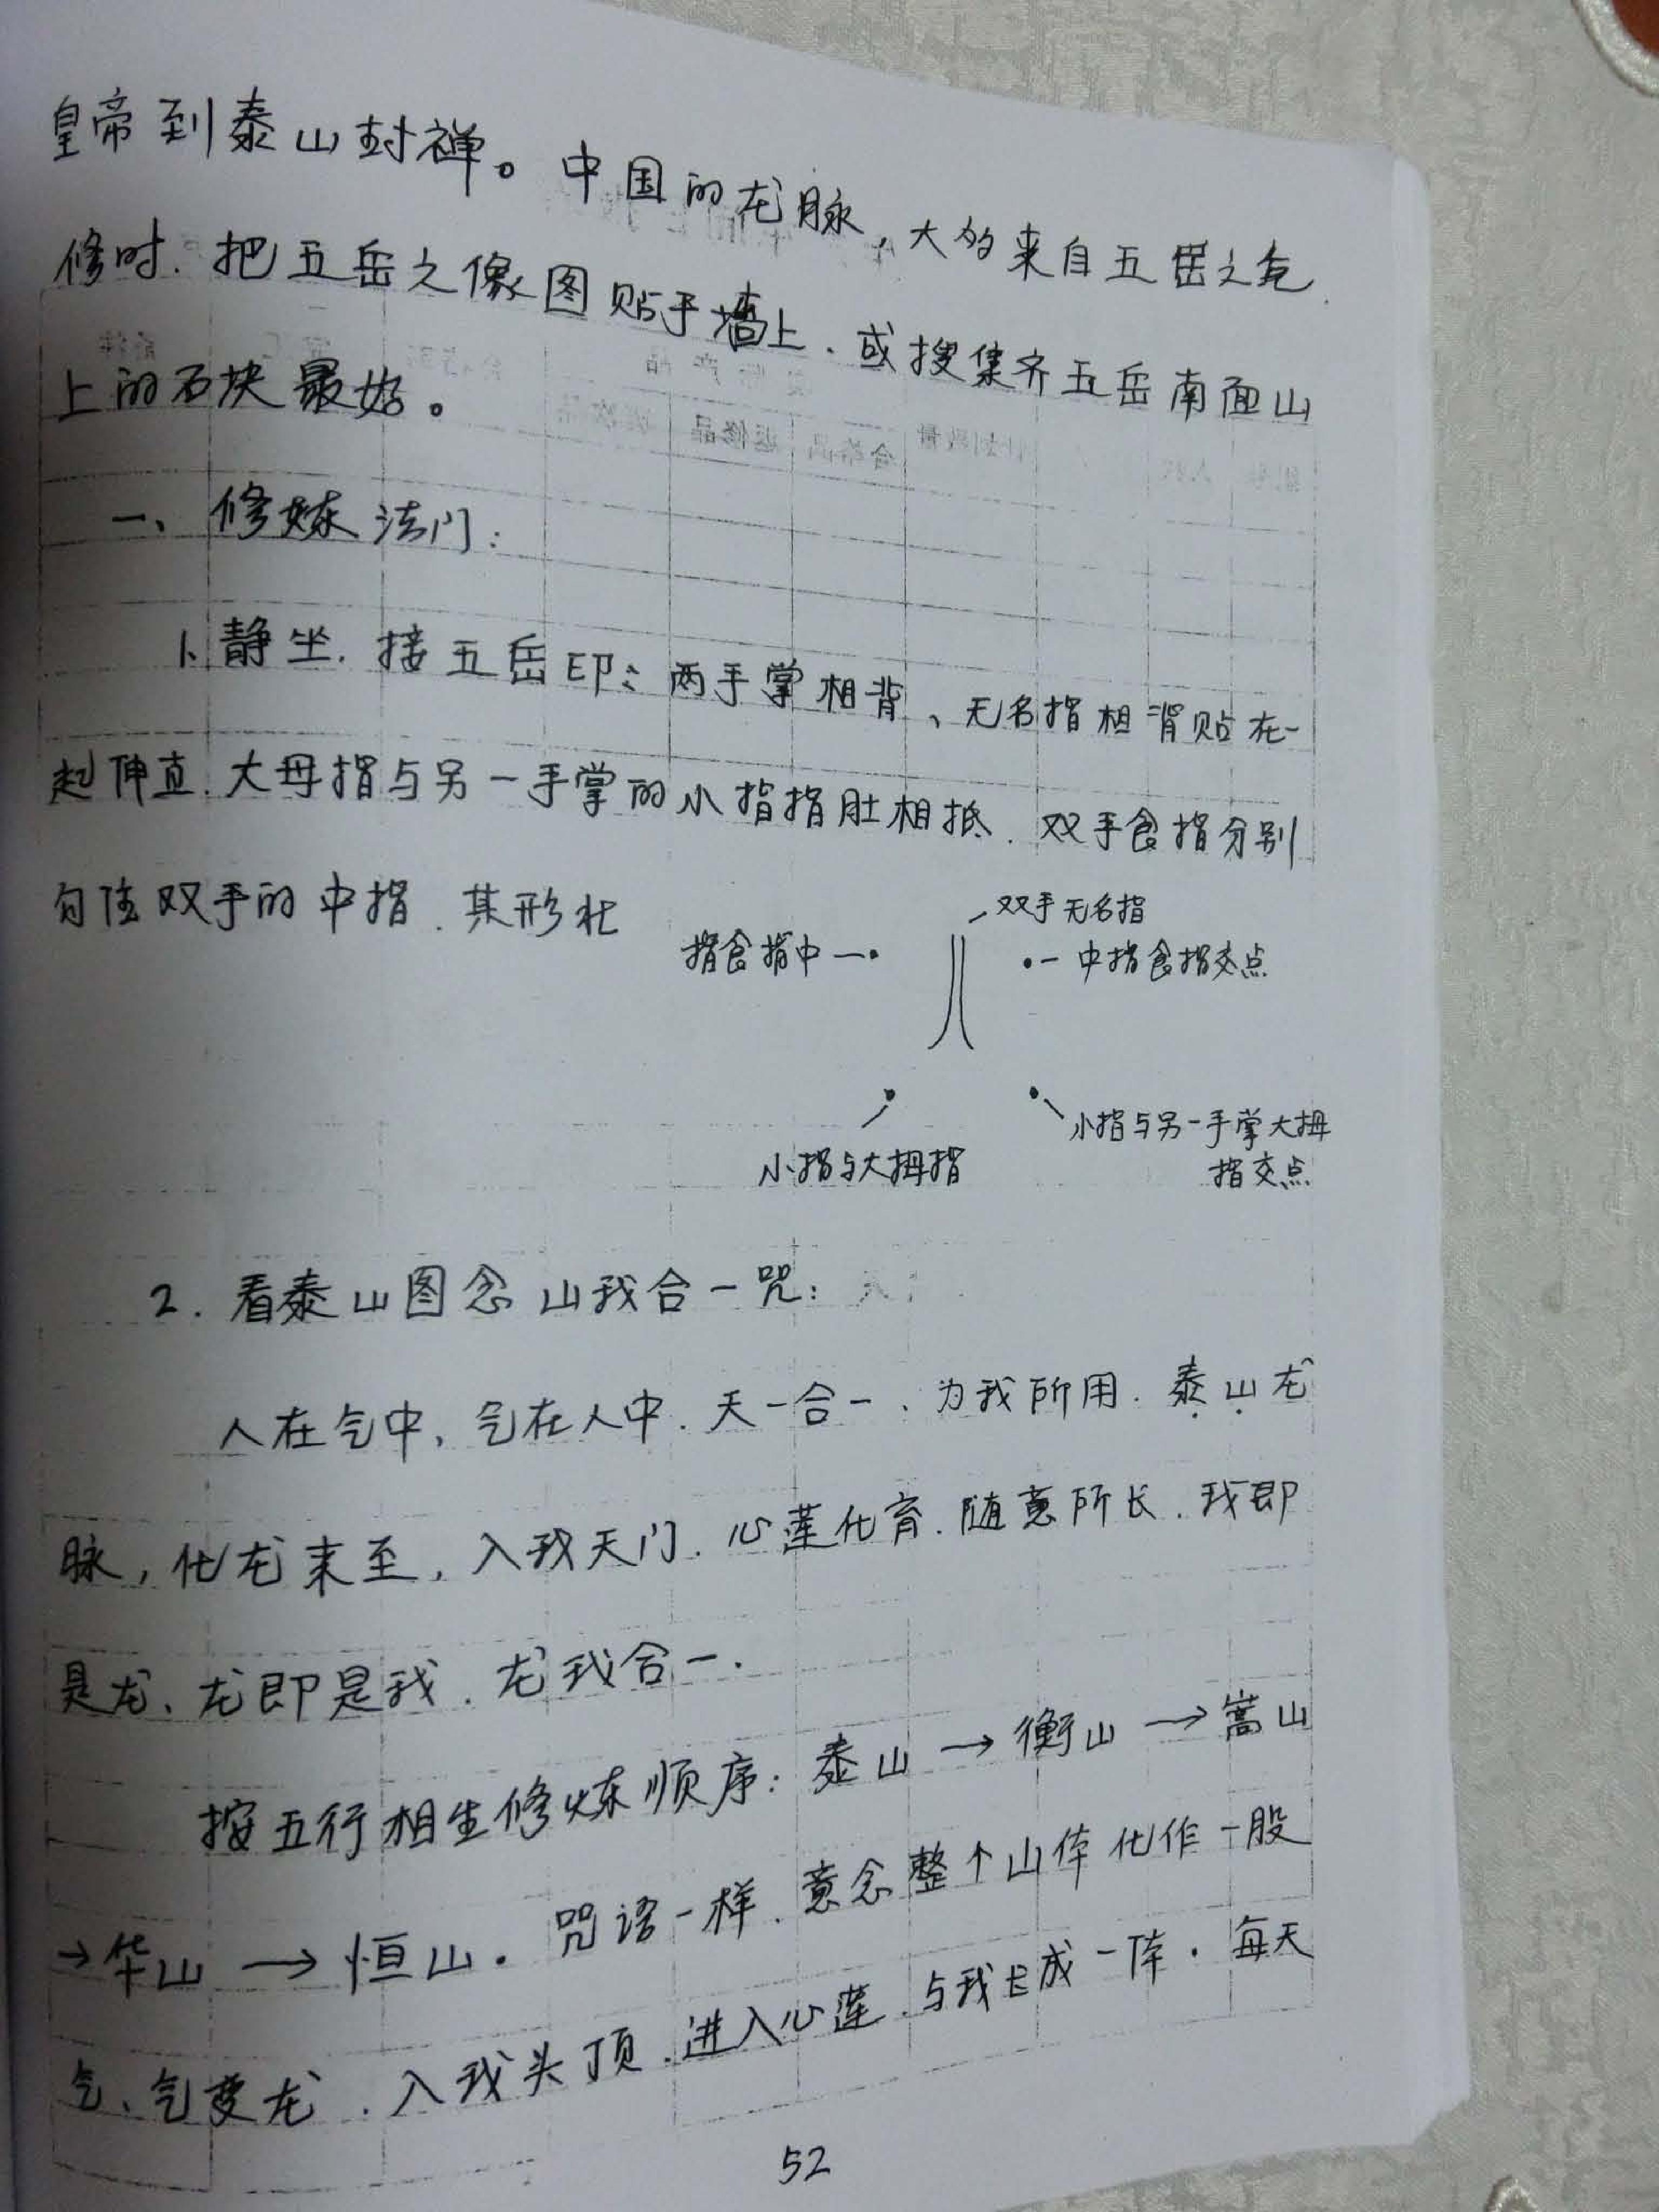 皇帝到泰山封禅。中国的龙脉，大的来自五岳之气
修时.把五岳之像图贴于墙上.或搜集齐五岳南面山
上的石块最好。
一、修炼法门：
1.静坐.接五岳印：两手掌相背、无名指相背贴在一
起伸直.大母指与另一手掌的小指指肚相抵.双手食指分别
勾住双手的中指.其形状
双手无名指
指食指中一•
•一中指食指交点
小指与大拇指
小指与另一手掌大拇
指交点
2.看泰山图念山我合一咒：
人在气中，气在人中.天一合一、为我所用.泰山龙
脉，化龙来至，入我天门.心莲化育.随意所长.我即
是龙、龙即是我.龙我合一.
按五行相生修炼顺序：泰山→衡山→嵩山
→华山→恒山.咒语一样.意念整个山体化作一股
气、气变龙.入我头顶.进入心莲.与我长成一体.每天
52